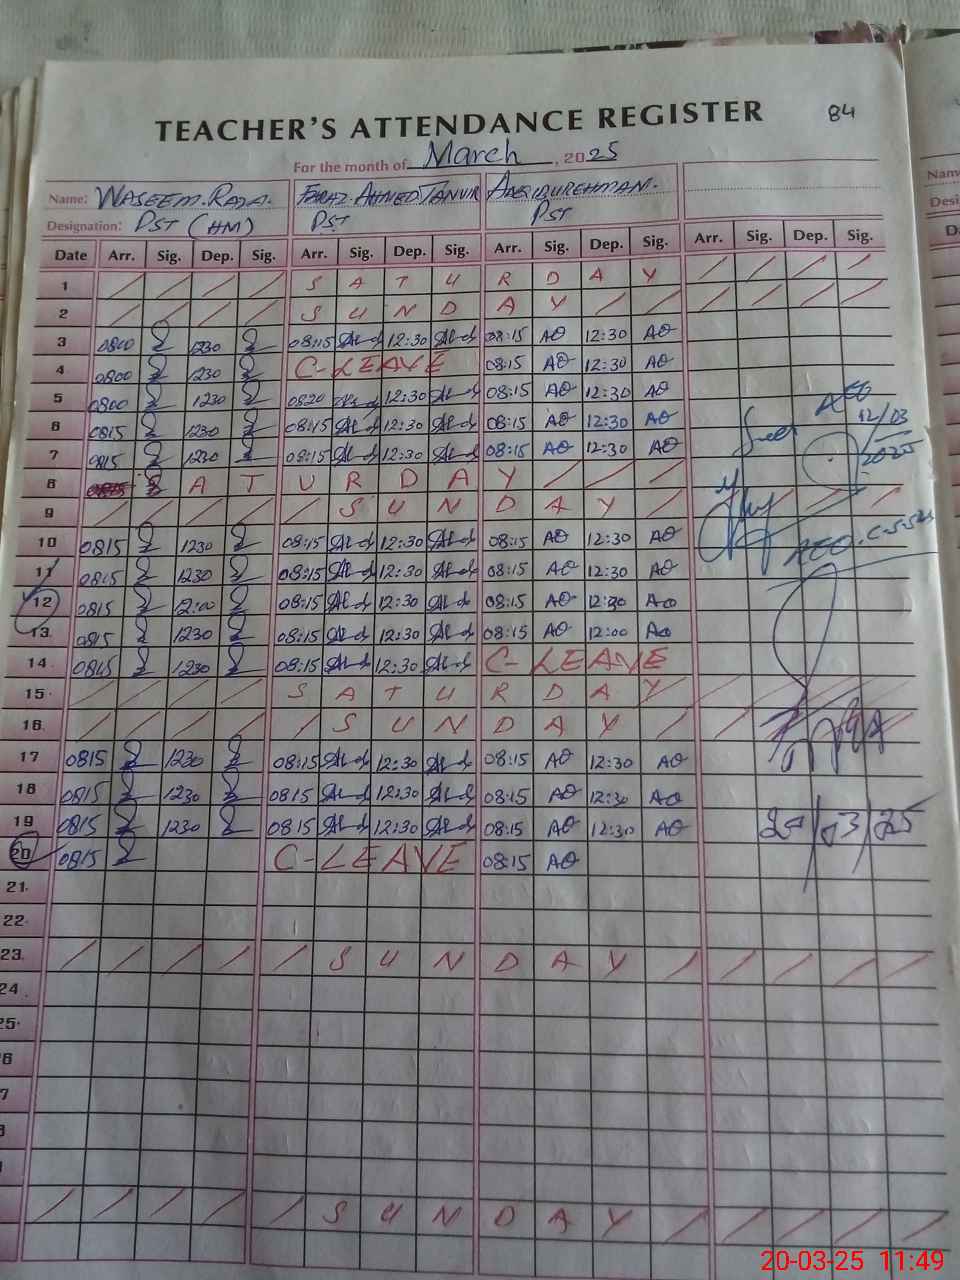 TEACHER'S ATTENDANCE REGISTER 84
For the month of March, 2025
Name: WASEEM. RAZA. FARAZ AHMED TANVIR
Designation: PST (HM) PST PST
Date Arr. Sig. Dep. Sig. Arr. Sig. Dep. Sig. Arr. Sig. Dep. Sig. Arr. Sig. Dep. Sig.
1 / / / / S A T U R D A Y / / / /
2 / / / / S U N D A Y / / / / / /
3 0800 1230 08:15 12:30 08:15 AO 12:30 AO
4 0800 1230 C-LEAVE 08:15 AO 12:30 AO
5 0800 1230 0820 12:30 08:15 AO 12:30 AO
6 0815 1230 08:15 12:30 08:15 AO 12:30 AO 12/03
7 0815 1230 08:15 12:30 08:15 AO 12:30 AO 2025
8 S A T U R D A Y / / /
9 / / / / / S U N D A Y / /
10 0815 1230 08:15 12:30 08:15 AO 12:30 AO
11 0815 1230 08:15 12:30 08:15 AO 12:30 AO AEO.
12 0815 12:00 08:15 12:30 08:15 AO 12:30 AO
13 0815 1230 08:15 12:30 08:15 AO 12:00 AO
14 0815 1230 08:15 12:30 C-LEAVE
15 / / / / S A T U R D A Y /
16 / / / / / S U N D A Y / /
17 0815 1230 08:15 12:30 08:15 AO 12:30 AO
18 0815 1230 0815 12:30 08:15 AO 12:30 AO
19 0815 1230 0815 12:30 08:15 AO 12:30 AO
20 0815 C-LEAVE 08:15 AO
21
22
23 / / / / / S U N D A Y / / / / /
24
25
/ / / / / S U N D A Y / / / / /
20-03-25 11:49